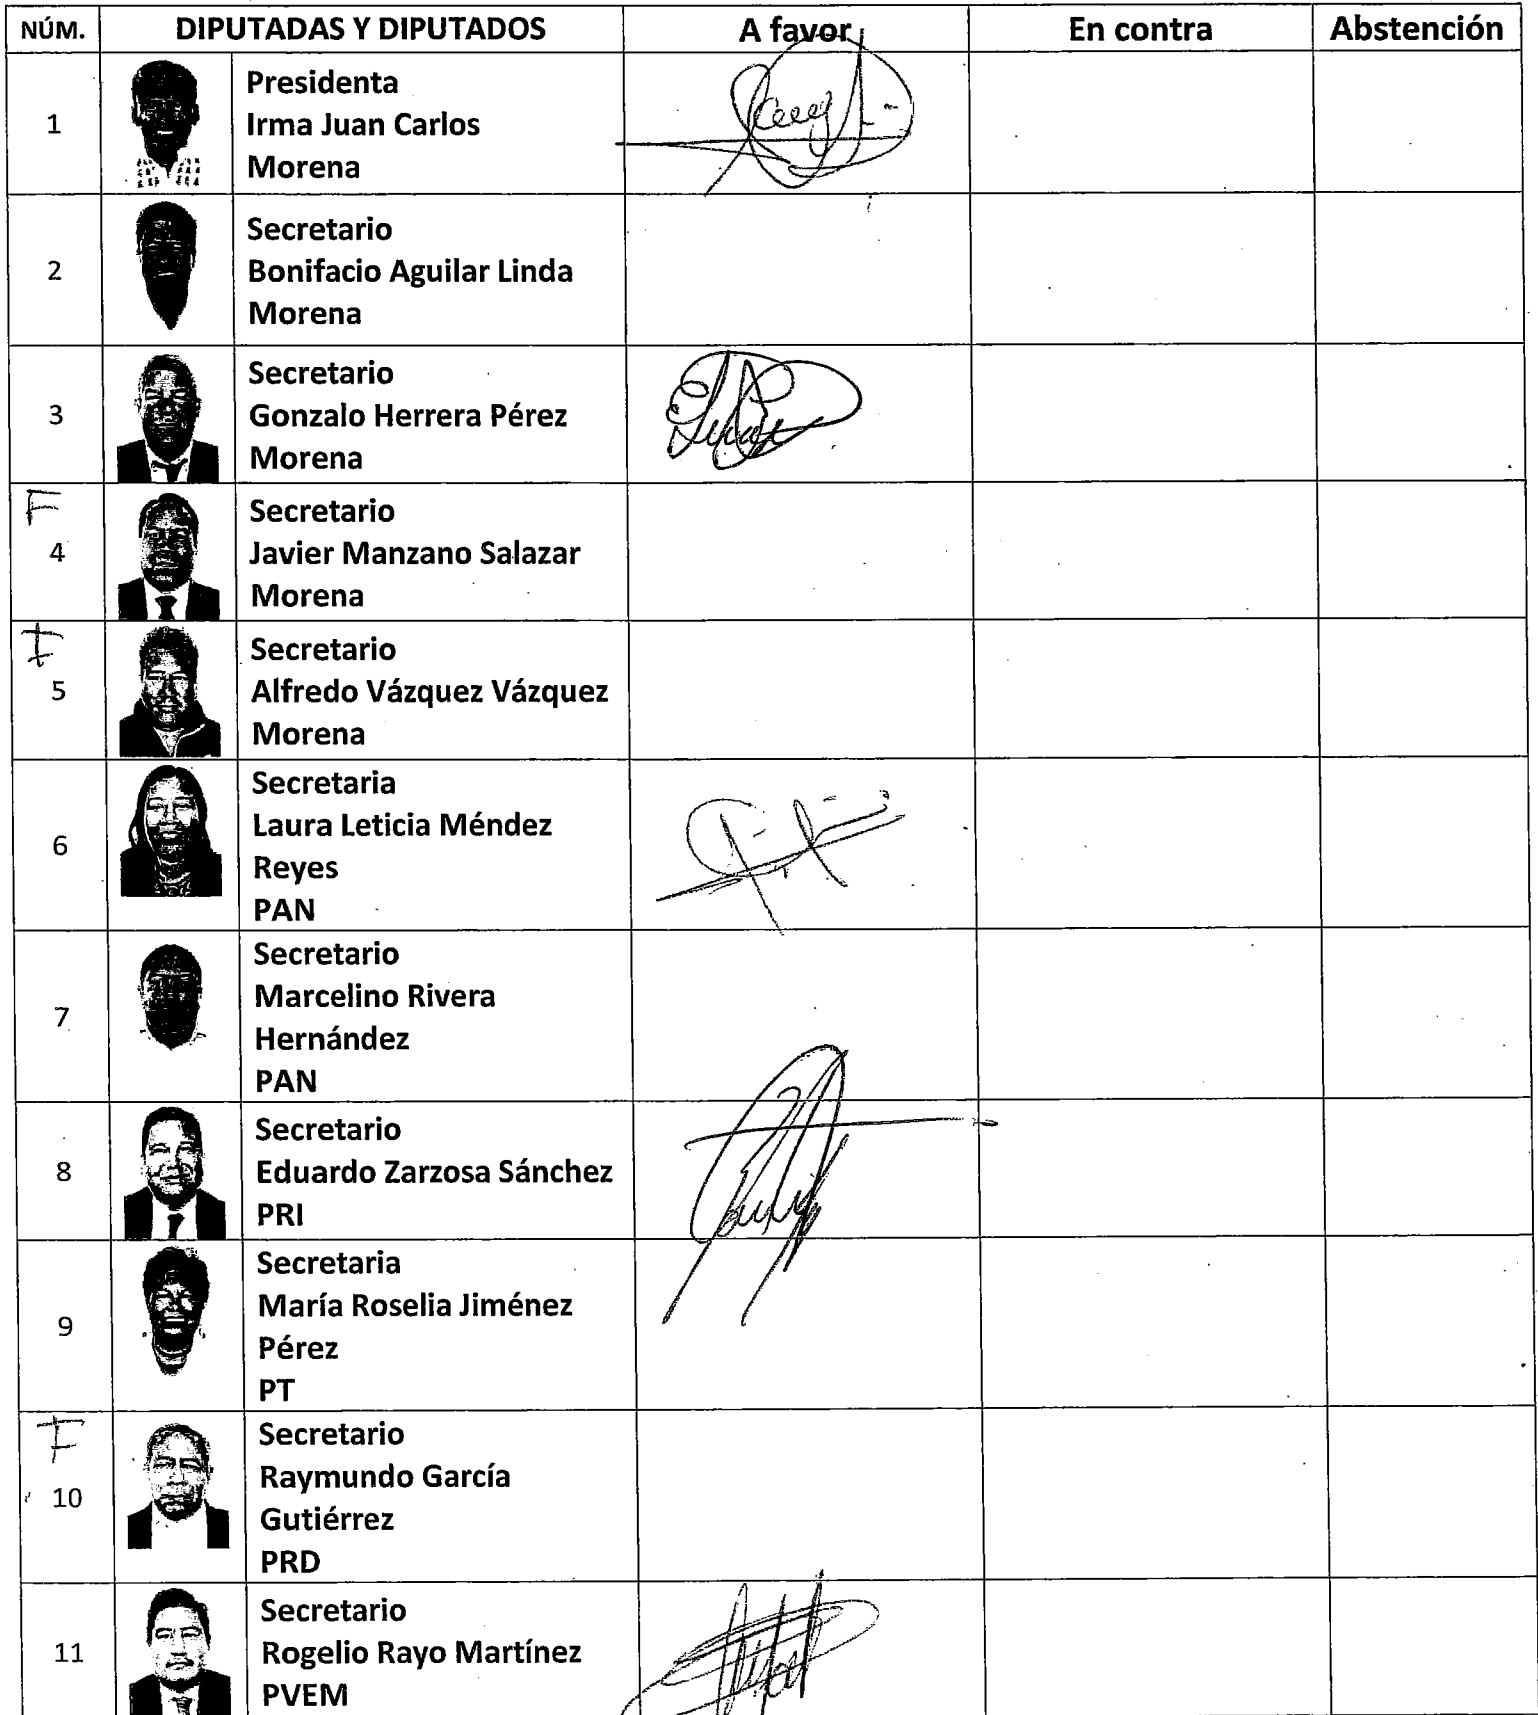 NÚM. DIPUTADAS Y DIPUTADOS A favor En contra Abstención
Presidenta
1 Irma Juan Carlos
Morena
Secretario
2 Bonifacio Aguilar Linda
Morena
Secretario
3 Gonzalo Herrera Pérez
Morena
F
Secretario
4 Javier Manzano Salazar
Morena
Secretario
5 Alfredo Vázquez Vázquez
Morena
Secretaria
Laura Leticia Méndez
6
Reyes
PAN
Secretario
Marcelino Rivera
7
Hernández
PAN
Secretario
8 Eduardo Zarzosa Sánchez
PRI
Secretaria
María Roselia Jiménez
9
Pérez
PT
F
Secretario
Raymundo García
10
Gutiérrez
PRD
Secretario
11 Rogelio Rayo Martínez
PVEM